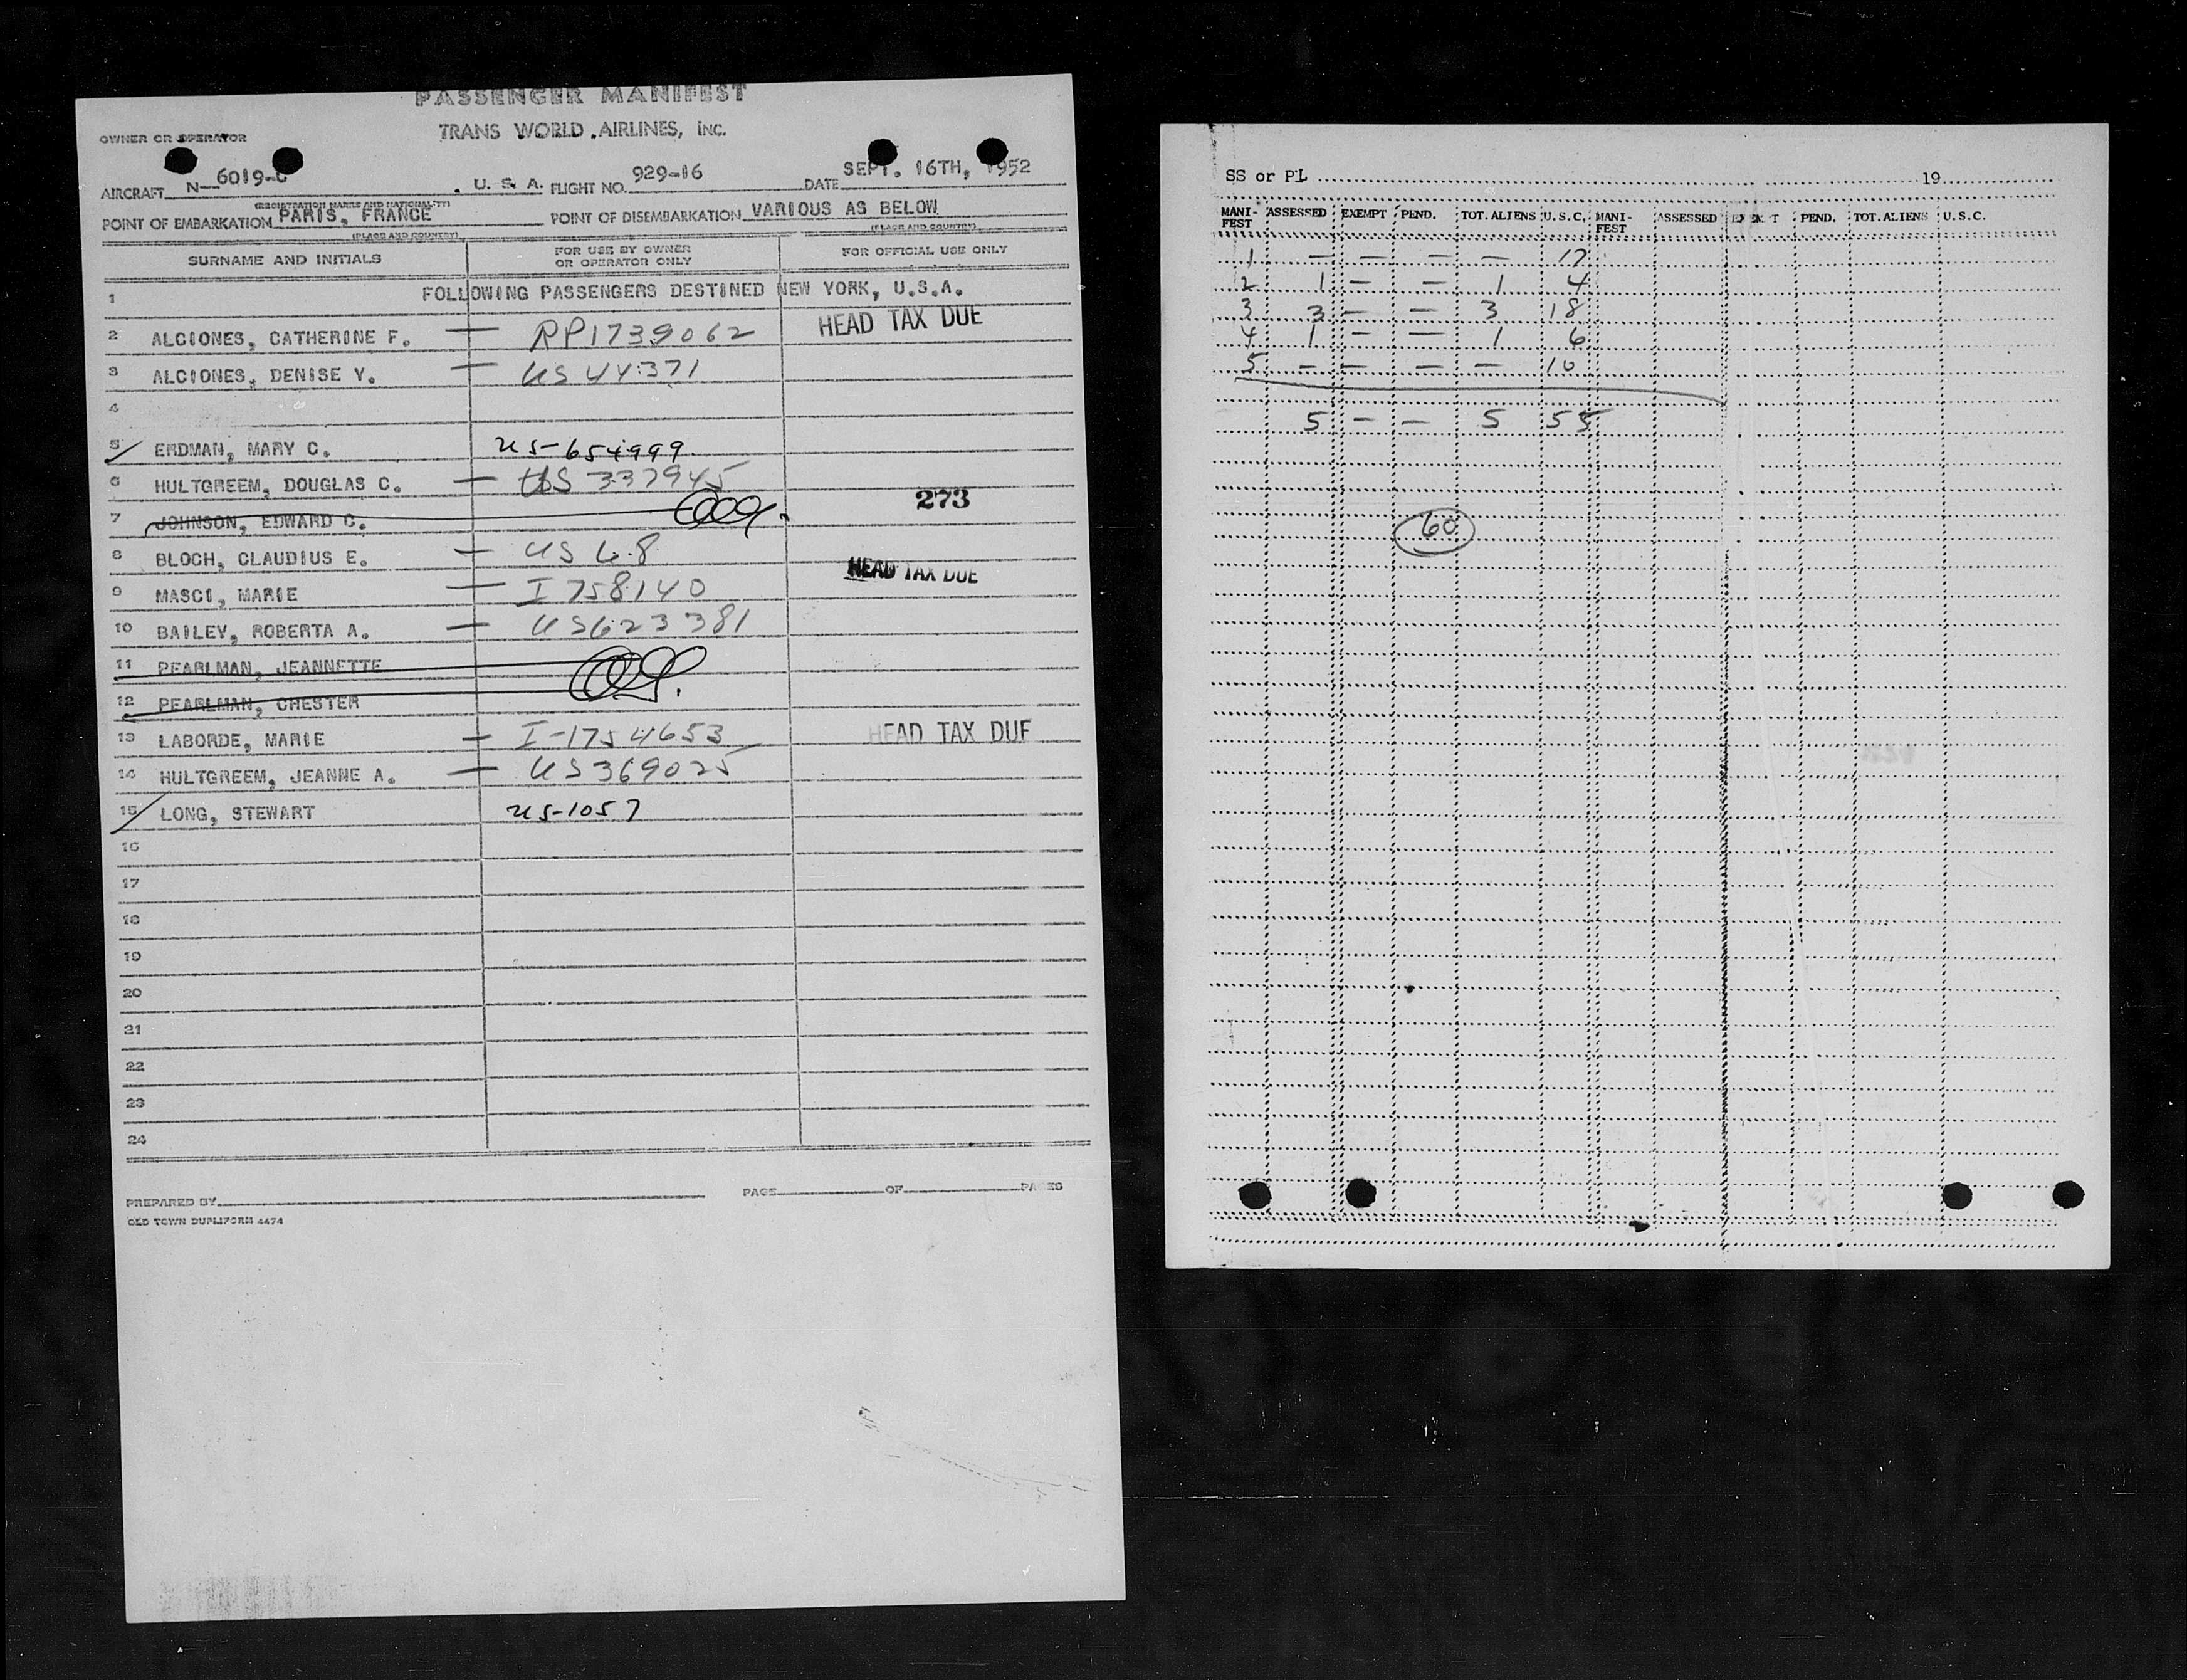 PASSENGER MANIFEST
OWNER OR OPERATOR TRANS WORLD AIRLINES, INC.
AIRCRAFT N-6019-C U. S. A. FLIGHT NO. 929-16 DATE SEPT. 16TH, 1952
(REGISTRATION MARKS AND NATIONALITY)
POINT OF EMBARKATION PARIS, FRANCE POINT OF DISEMBARKATION VARIOUS AS BELOW
(PLACE AND COUNTRY) (PLACE AND COUNTRY)
SURNAME AND INITIALS FOR USE BY OWNER OR OPERATOR ONLY FOR OFFICIAL USE ONLY
1 FOLLOWING PASSENGERS DESTINED NEW YORK, U.S.A.
2 ALCIONES, CATHERINE F. — RP1739062 HEAD TAX DUE
3 ALCIONES, DENISE Y. — US 44371
4
5 ERDMAN, MARY C. US-654999
6 HULTGREEM, DOUGLAS C. — US 337945
7 JOHNSON, EDWARD C. 273
8 BLOCH, CLAUDIUS E. — US 68
9 MASCI, MARIE — I 758140 HEAD TAX DUE
10 BAILEY, ROBERTA A. — US623381
11 PEARLMAN, JEANNETTE
12 PEARLMAN, CHESTER
13 LABORDE, MARIE — I-1754653 HEAD TAX DUE
14 HULTGREEM, JEANNE A. — US369025
15 LONG, STEWART US-1057
16
17
18
19
20
21
22
23
24
PREPARED BY PAGE OF PAGES
OLD TOWN DUPLIFORM 4474
SS or PL 19
MANI-FEST ASSESSED EXEMPT PEND. TOT. ALIENS U.S.C. MANI-FEST ASSESSED EXEMPT PEND. TOT. ALIENS U.S.C.
1 — — — — 17
2 1 — — 1 4
3 3 — — 3 18
4 1 — — 1 6
5 — — — — 10
5 — — 5 55
60